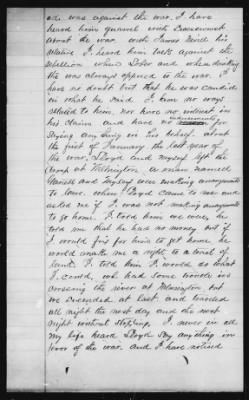 ads was against the war. I have
heard him quarrel with
about the war. with James Lovill his
relative I heard him talk against the
rebellion when sober and when drinking
He was always opposed to the war. I
have no doubt but that he was candid
in what he said I am no ways
related to him, nor have no interest in
his claim and have no inducements for
saying any thing in his behalf. about
the first of January the last year of
the war, Lloyd and myself left the
camp at Wilmington a man named
and myself were making arrangements
to leave when Lloyd came to me and
asked me if I was not making arrangements
to go home. I told him we were, he
told me that he had no money but if
I would fix for him to get home he
would make me a right to a tract of
land, I told him I would do what
I could, we had some trouble in
crossing the river at Wilmington but
we succeeded at last, and traveled
all night the next day and the next
night without stopping, I never in all
my life heard Lloyd say any thing in
favor of the war, and I have noticed